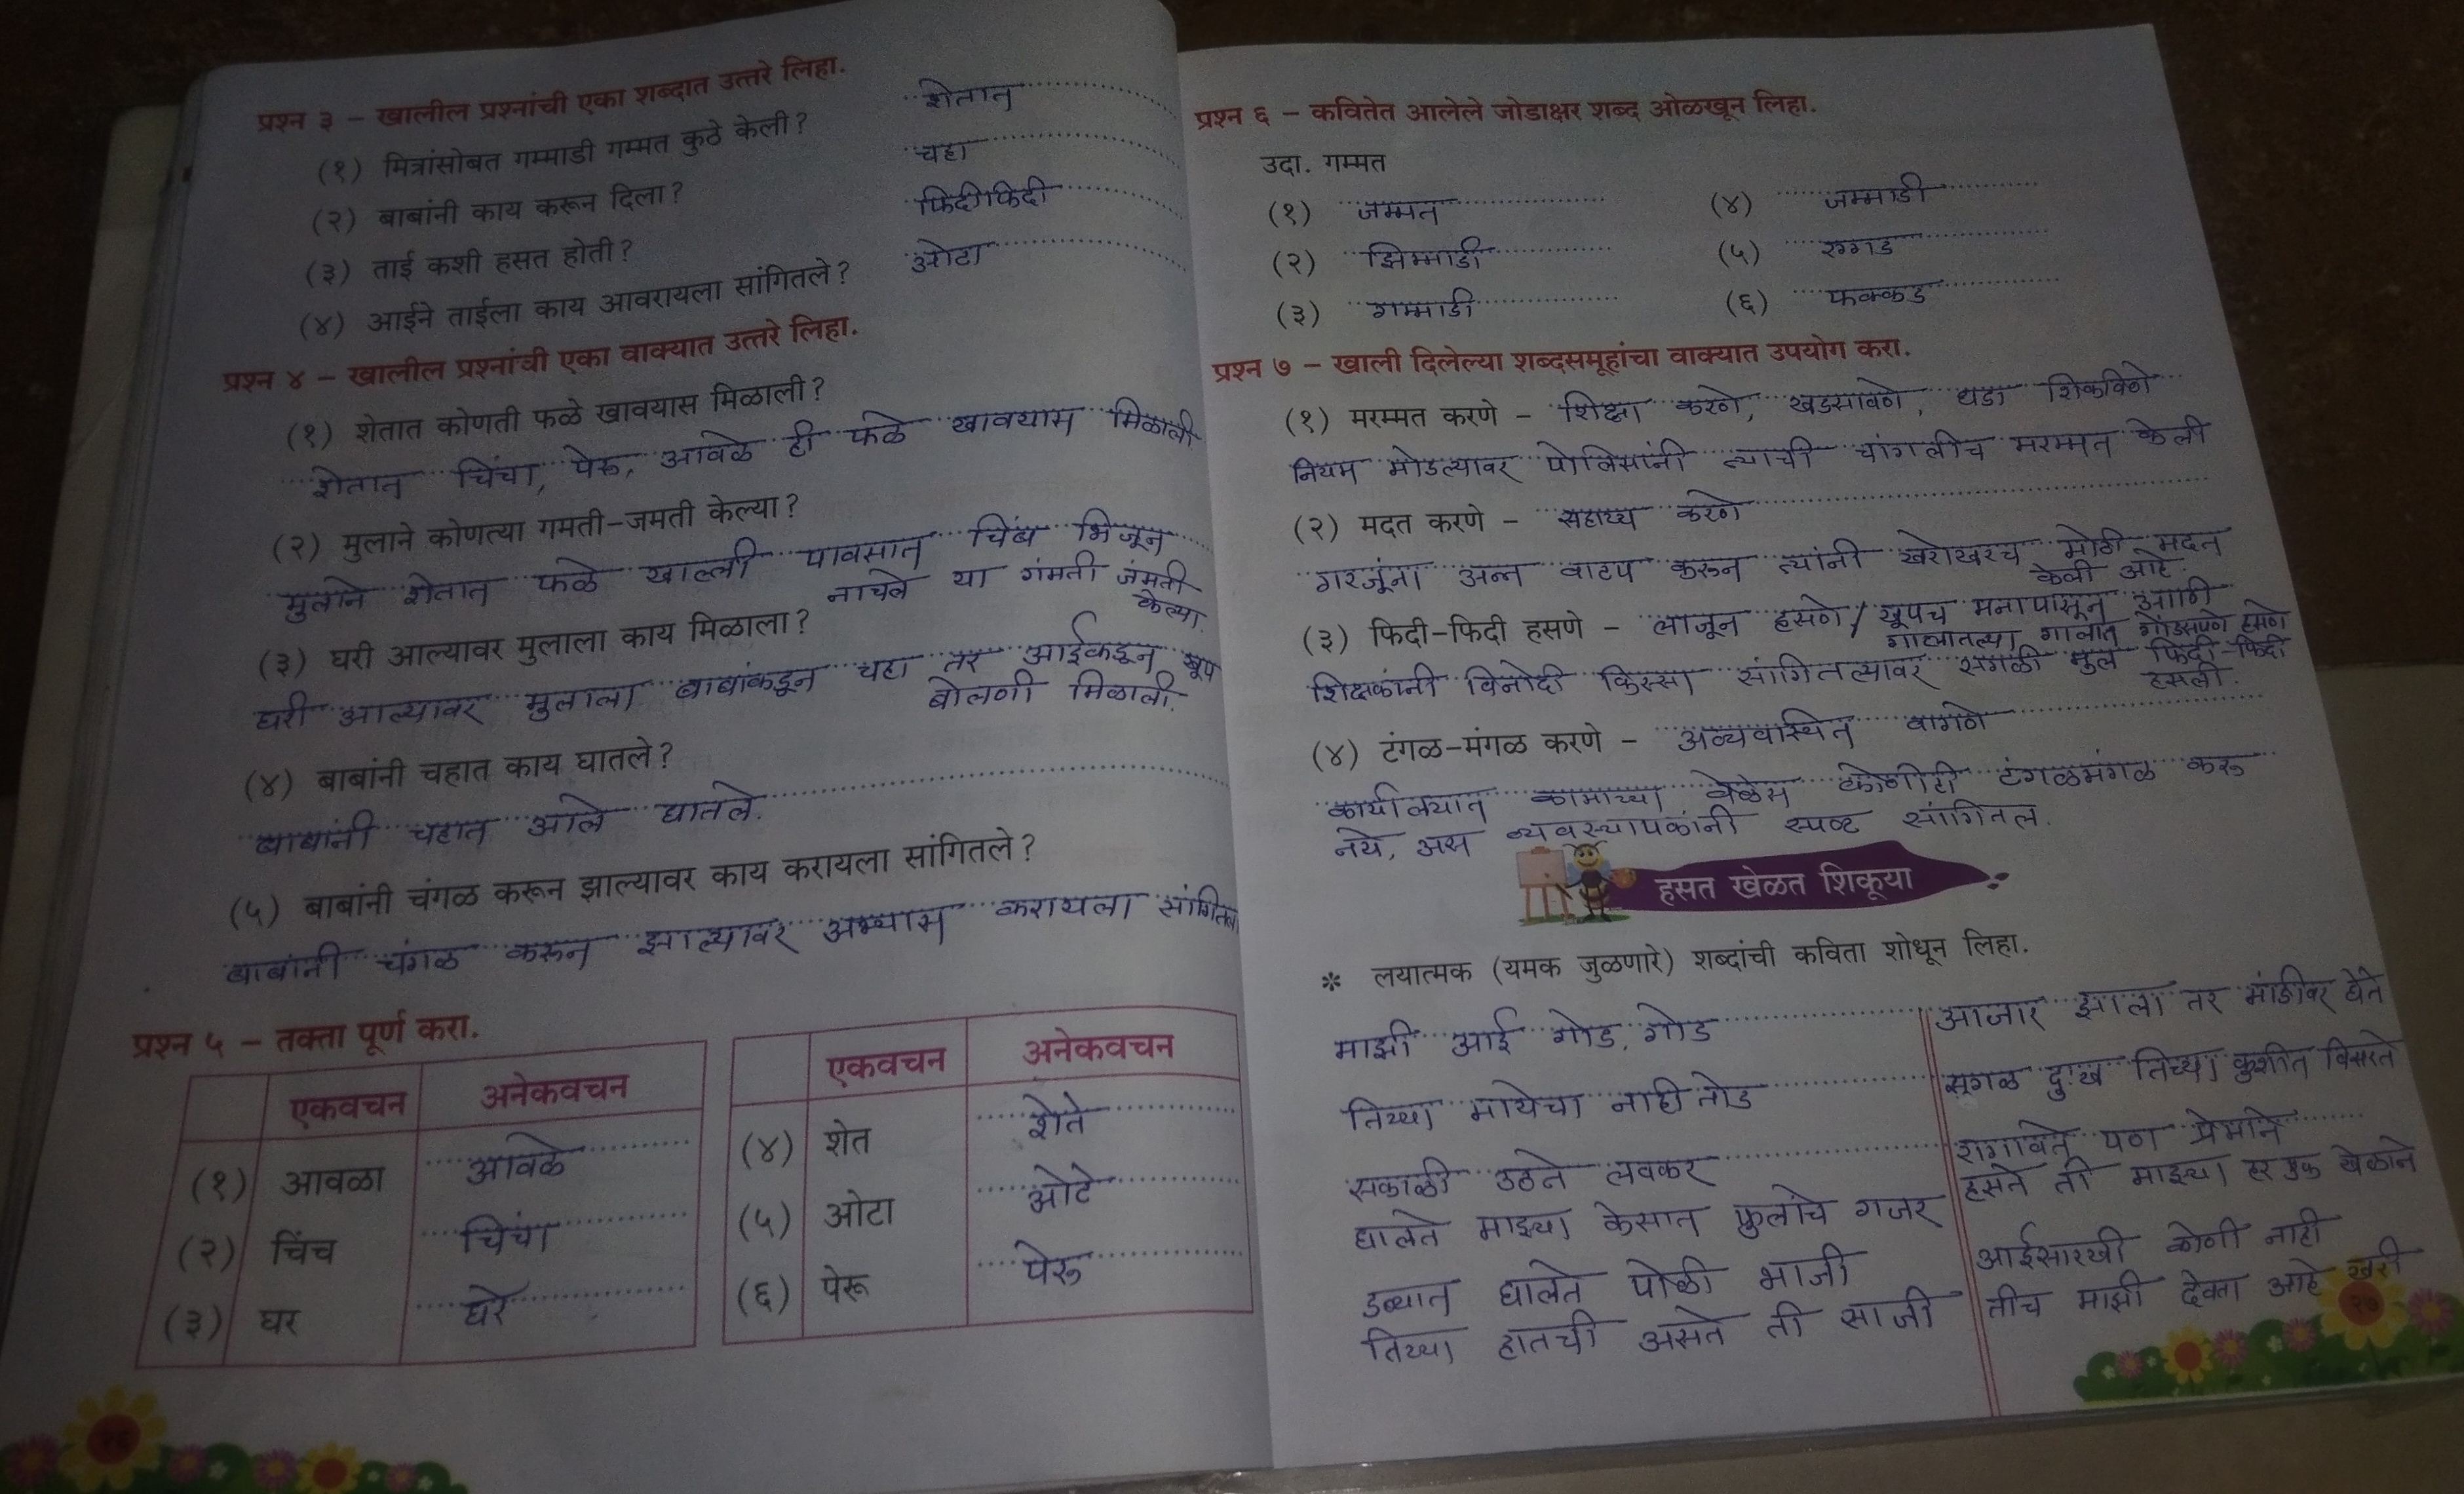 प्रश्न ३ – खालील प्रश्नांची एका शब्दात उत्तरे लिहा.
(१) मित्रांसोबत गम्माडी गम्मत कुठे केली? शेतात
(२) बाबांनी काय करून दिला? चहा
(३) ताई कशी हसत होती? फिदीफिदी
(४) आईने ताईला काय आवरायला सांगितले? ओटा
प्रश्न ४ – खालील प्रश्नांची एका वाक्यात उत्तरे लिहा.
(१) शेतात कोणती फळे खावयास मिळाली?
शेतात चिंचा, पेरू, आवळे ही फळे खावयास मिळाली
(२) मुलाने कोणत्या गमती-जमती केल्या?
मुलाने शेतात फळे खाल्ली पावसात चिंब भिजून
नाचले या गंमती जंमती
केल्या.
(३) घरी आल्यावर मुलाला काय मिळाला?
घरी आल्यावर मुलाला बाबांकडून चहा तर आईकडून खूप
बोलणी मिळाली.
(४) बाबांनी चहात काय घातले?
बाबांनी चहात आले घातले.
(५) बाबांनी चंगळ करून झाल्यावर काय करायला सांगितले?
बाबांनी चंगळ करून झाल्यावर अभ्यास करायला सांगितल
प्रश्न ५ – तक्ता पूर्ण करा.
एकवचन अनेकवचन
(१) आवळा आवळे
(२) चिंच चिंचा
(३) घर घरे
एकवचन अनेकवचन
(४) शेत शेते
(५) ओटा ओटे
(६) पेरू पेरू
प्रश्न ६ – कवितेत आलेले जोडाक्षर शब्द ओळखून लिहा.
उदा. गम्मत
(१) जम्मत (४) जम्माडी
(२) झिम्माडी (५) रग्गड
(३) गम्माडी (६) फक्कड
प्रश्न ७ – खाली दिलेल्या शब्दसमूहांचा वाक्यात उपयोग करा.
(१) मरम्मत करणे – शिक्षा करणे, खडसावणे, धडा शिकविणे
नियम मोडल्यावर पोलिसांनी त्याची चांगलीच मरम्मत केली
(२) मदत करणे – सहाय्य करणे
गरजूंना अन्न वाटप करून त्यांनी खरोखरच मोठी मदत
केली आहे.
(३) फिदी-फिदी हसणे – लाजून हसणे/ खूपच मनापासून आणि
गालातल्या गालात गोंडसपणे हसणे
शिक्षकांनी विनोदी किस्सा सांगितल्यावर सगळी मुल फिदी-फिदी
हसली.
(४) टंगळ-मंगळ करणे – अव्यवस्थित वागणे
कार्यालयात कामाच्या वेळेस कोणीही टंगळमंगळ करू
नये, अस व्यवस्थापकांनी स्पष्ट सांगितल.
हसत खेळत शिकूया
* लयात्मक (यमक जुळणारे) शब्दांची कविता शोधून लिहा.
माझी आई गोड, गोड
तिच्या मायेचा नाही तोड
सकाळी उठते लवकर
घालते माझ्या केसात फुलांचे गजर
डब्यात घालते पोळी भाजी
तिच्या हातची असते ती साजी
आजार झाला तर मांडीवर घेते
सगळ दुःख तिच्या कुशीत विसरते
रागावते पण प्रेमाने
हसते ती माझ्या हर एक खेळाने
आईसारखी कोणी नाही
तीच माझी देवता आहे खरी
२६
२७